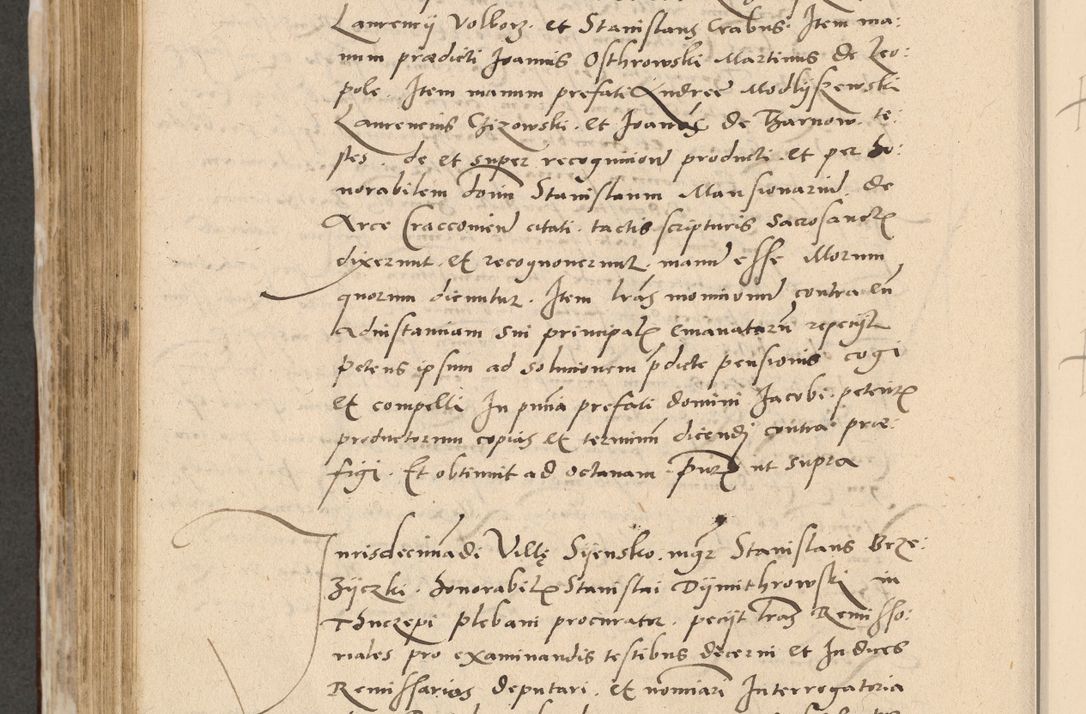 Laurencij Volborz. et Stanislaus Crabus. Item ma:
num prædicti Joannis Osthrowski Martinus de Leo:
pole. Item manum prefati Andreę Modlijszewski
Laurencius Czizowski. et Joannes de Tharnow. te:
stes. de et super recognicione producti. et per ho:
norabilem dominum Stanislaum Mansionarium de
Arce Craccovien citati. tactis scripturis Sacrosanctis
dixerunt. et recognoverunt. manum esse illorum
quorum dicuntur. Item lras monicionum contra eum
Ad instanciam sui principalis emanatarum repecijt
Petens ipsum ad solucionem pdicte pensionis cogi
et compelli In pntia prefati domini Jacobi. petentis
productorum copias et terminum dicendi contra præ:
figi. Et obtinuit ad octavam. Pntibus ut supra
Juris decimandi Villę Sijensko. mgr Stanislaus Brze:
zijczki. honorabilis Stanislai Dijmithrowski in
Thuczepi Plebani procurator. pecijt lras Remisso:
riales pro examinandis testibus decerni et Judices
Remissarios deputari. et nominari Interrogatoria